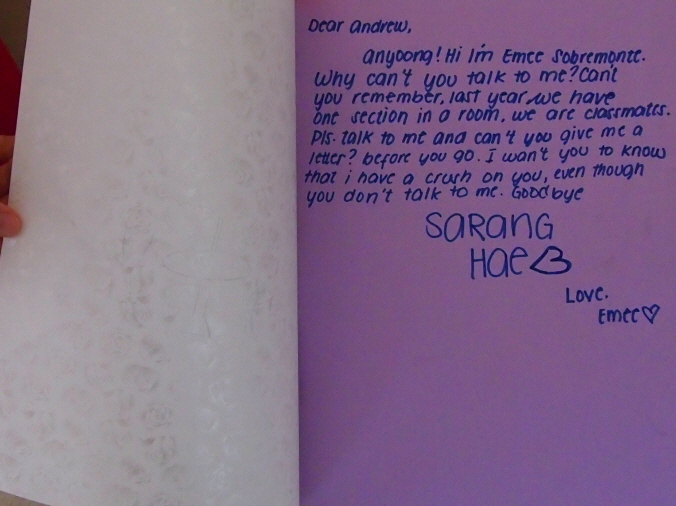 Dear Andrew,
Anyoong! Hi I'm Emee Sobremonte.
Why can't you talk to me? Can't
you remember, last year we have
one section in a room, we are classmates.
Pls. talk to me and can't you give me a
letter? before you go. I wan't you to know
that i have a crush on you, even though
you don't talk to me. Goodbye
SARANG
HAE♡
Love.
Emee♡